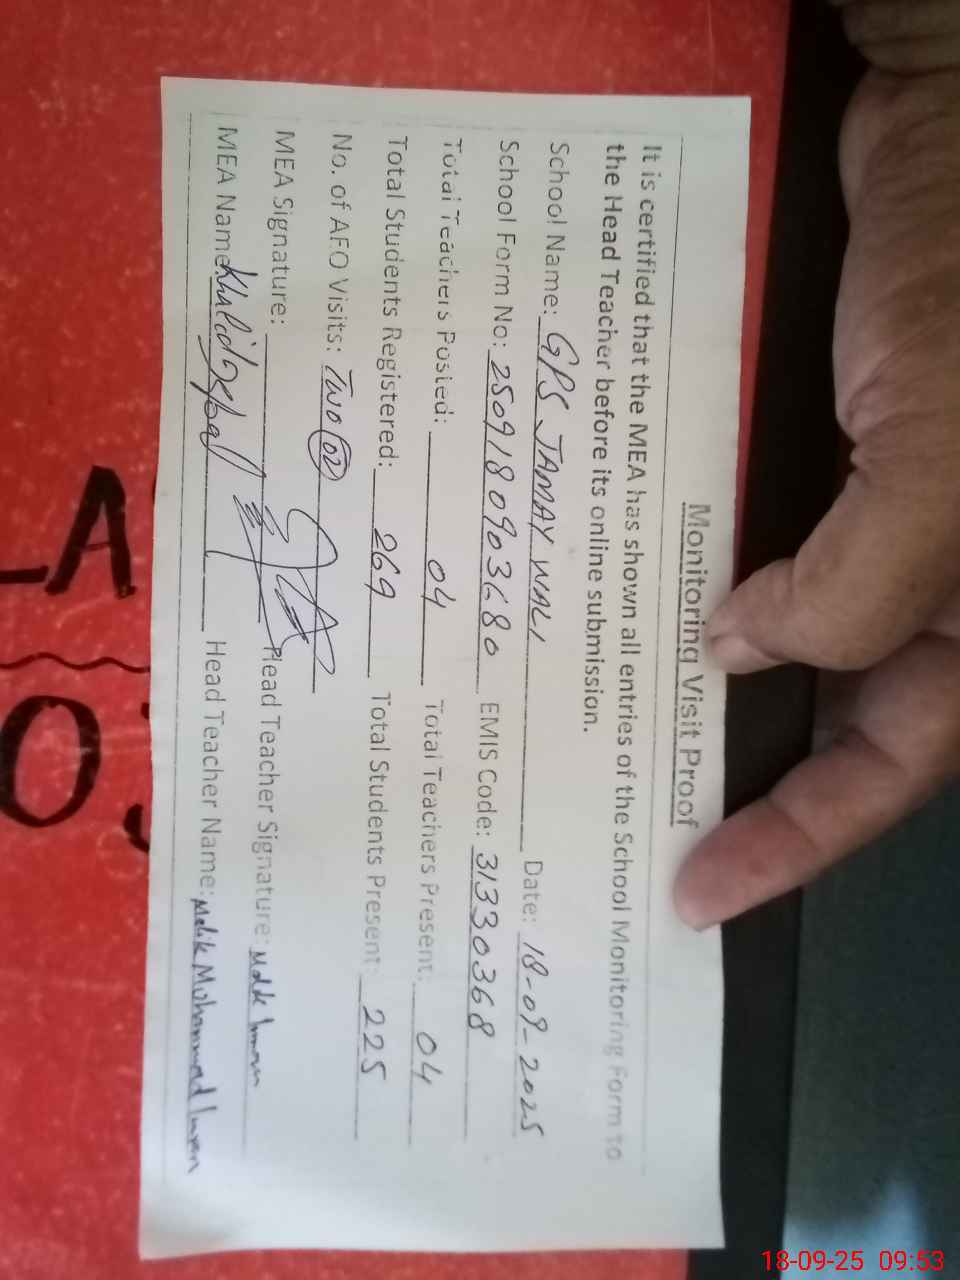 Monitoring Visit Proof
It is certified that the MEA has shown all entries of the School Monitoring Form to
the Head Teacher before its online submission.
School Name: GPS JAMAY WALI Date: 18-09-2025
School Form No: 25091809903680 EMIS Code: 31330368
Total Teachers Posted: 04 Total Teachers Present: 04
Total Students Registered: 269 Total Students Present: 225
No. of AEO Visits: Two (02)
MEA Signature: Head Teacher Signature: Malik Imran
MEA Name: Khalid Iqbal Head Teacher Name: Malik Muhammad Imran
LA
03
18-09-25 09:53